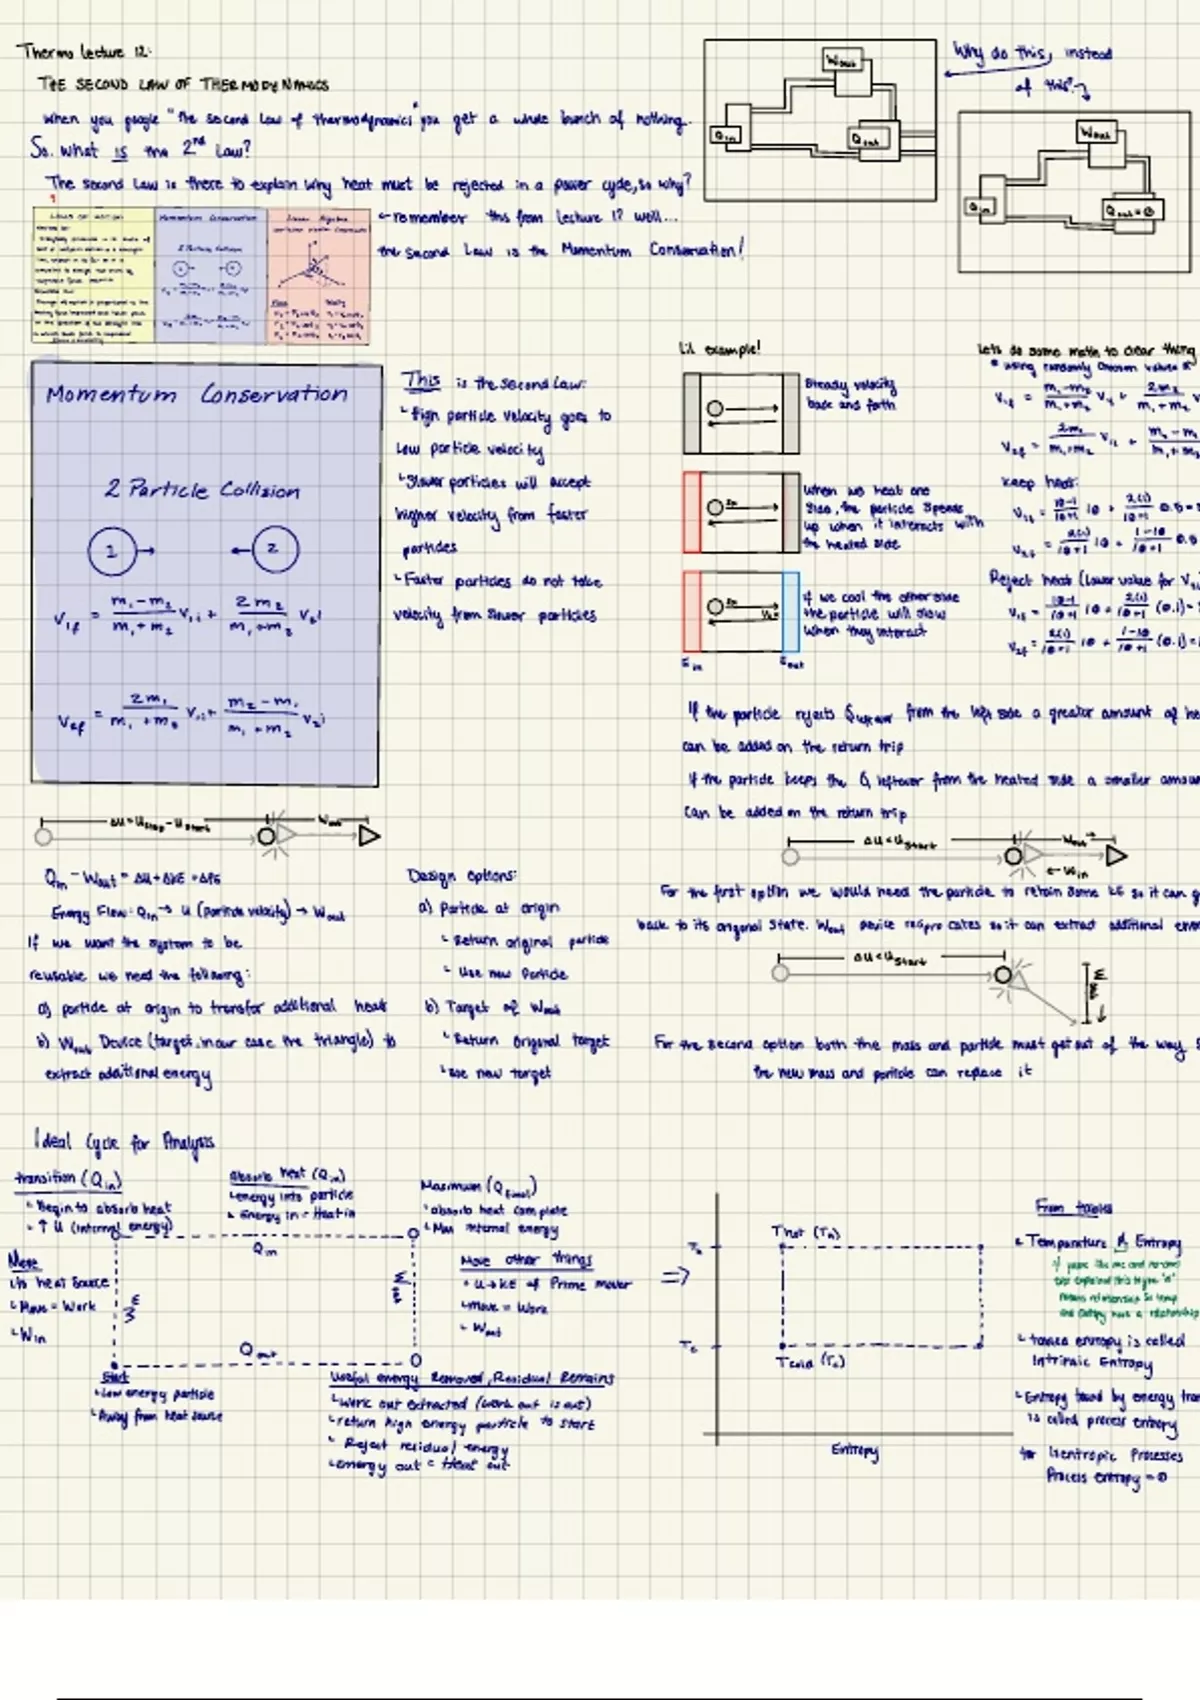 Thermo Lecture 12:
THE SECOND LAW OF THERMODYNAMICS
When you google "the second law of thermodynamics" you get a whole bunch of nothing.
So. What is the 2nd Law?
The second Law is there to explain why heat must be rejected in a power cycle, so why?
← remember this from Lecture 1? well...
the second Law is the Momentum Conservation!
Wout
Qin
Qout
Why do this, instead
of this?
Wout
Qin
Qout = 0
LAWS OF MOTION
Momentum Conservation
2 Particle Collision
Linear Algebra
Momentum Conservation
2 Particle Collision
1
2
V1f = m1 - m2 / m1 + m2 V1i + 2m2 / m1 + m2 V2i
V2f = 2m1 / m1 + m2 V1i + m2 - m1 / m1 + m2 V2i
This is the second law:
High particle velocity goes to
low particle velocity
Slower particles will accept
higher velocity from faster
particles
Faster particles do not take
velocity from slower particles
Lil example!
Steady velocity
back and forth
When we heat one
side, the particle speeds
up when it interacts with
the heated side
if we cool the other side
the particle will slow
when they interact
Ein
Eout
Lets do some math to clear thing
* using randomly chosen values
V1f = m1 - m2 / m1 + m2 V1i + 2m2 / m1 + m2
V2f = 2m1 / m1 + m2 V1i +
Keep heat:
V1f = 10-1 / 10+1 10 + 2(1) / 10+1 0.5 =
V2f = 2(1) / 10+1 10 + 1-10 / 10+1 0.5
Reject heat (Lower value for V2i
V1f = 10-1 / 10+1 10 + 2(1) / 10+1 (0.1) =
V2f = 2(1) / 10+1 10 + 1-10 / 10+1 (0.1) =
If the particle rejects Qleftover from the left side a greater amount of he
can be added on the return trip
If the particle keeps the Q leftover from the heated side a smaller amou
can be added on the return trip
ΔU = Ustop - Ustart
Wout
Qin - Wout = ΔU + ΔKE + ΔPE
Energy Flow: Qin → U (particle velocity) → Wout
If we want the system to be
reusable we need the following:
a) particle at origin to transfer additional heat
b) Wout Device (target, in our case the triangle) to
extract additional energy
Design options:
a) Particle at origin
Return original particle
Use new Particle
b) Target of Wout
Return original target
Use new target
ΔU < Ustart
Wout →
← Win
For the first option we would need the particle to retain some KE so it can g
back to its original state. Wout device reciprocates so it can extract additional ener
ΔU < Ustart
Wout
For the second option both the mass and particle must get out of the way
the new mass and particle can replace it
Ideal Cycle for Analysis
Transition (Qin)
Begin to absorb heat
↑ U (internal energy)
Absorb heat (Qin)
energy into particle
Energy in = Heat in
Maximum (Qfinal)
absorb heat complete
Max internal energy
Qin
Move
to heat source
Move = Work
Win
Win
Wout
Move other things
U → KE of Prime mover
Move = Work
Wout
Qout
Start
Low energy particle
Away from heat source
Useful energy Removed, Residual Remains
Work out extracted (work out is out)
return high energy particle to start
Reject residual energy
energy out = Heat out
⇒
TH
Thot (TH)
TC
Tcold (TC)
Entropy
From tables
Temperature & Entropy
and entropy have a relationship
tables entropy is called
Intrinsic Entropy
Entropy found by energy tran
is called process entropy
for Isentropic Processes
Process entropy = 0